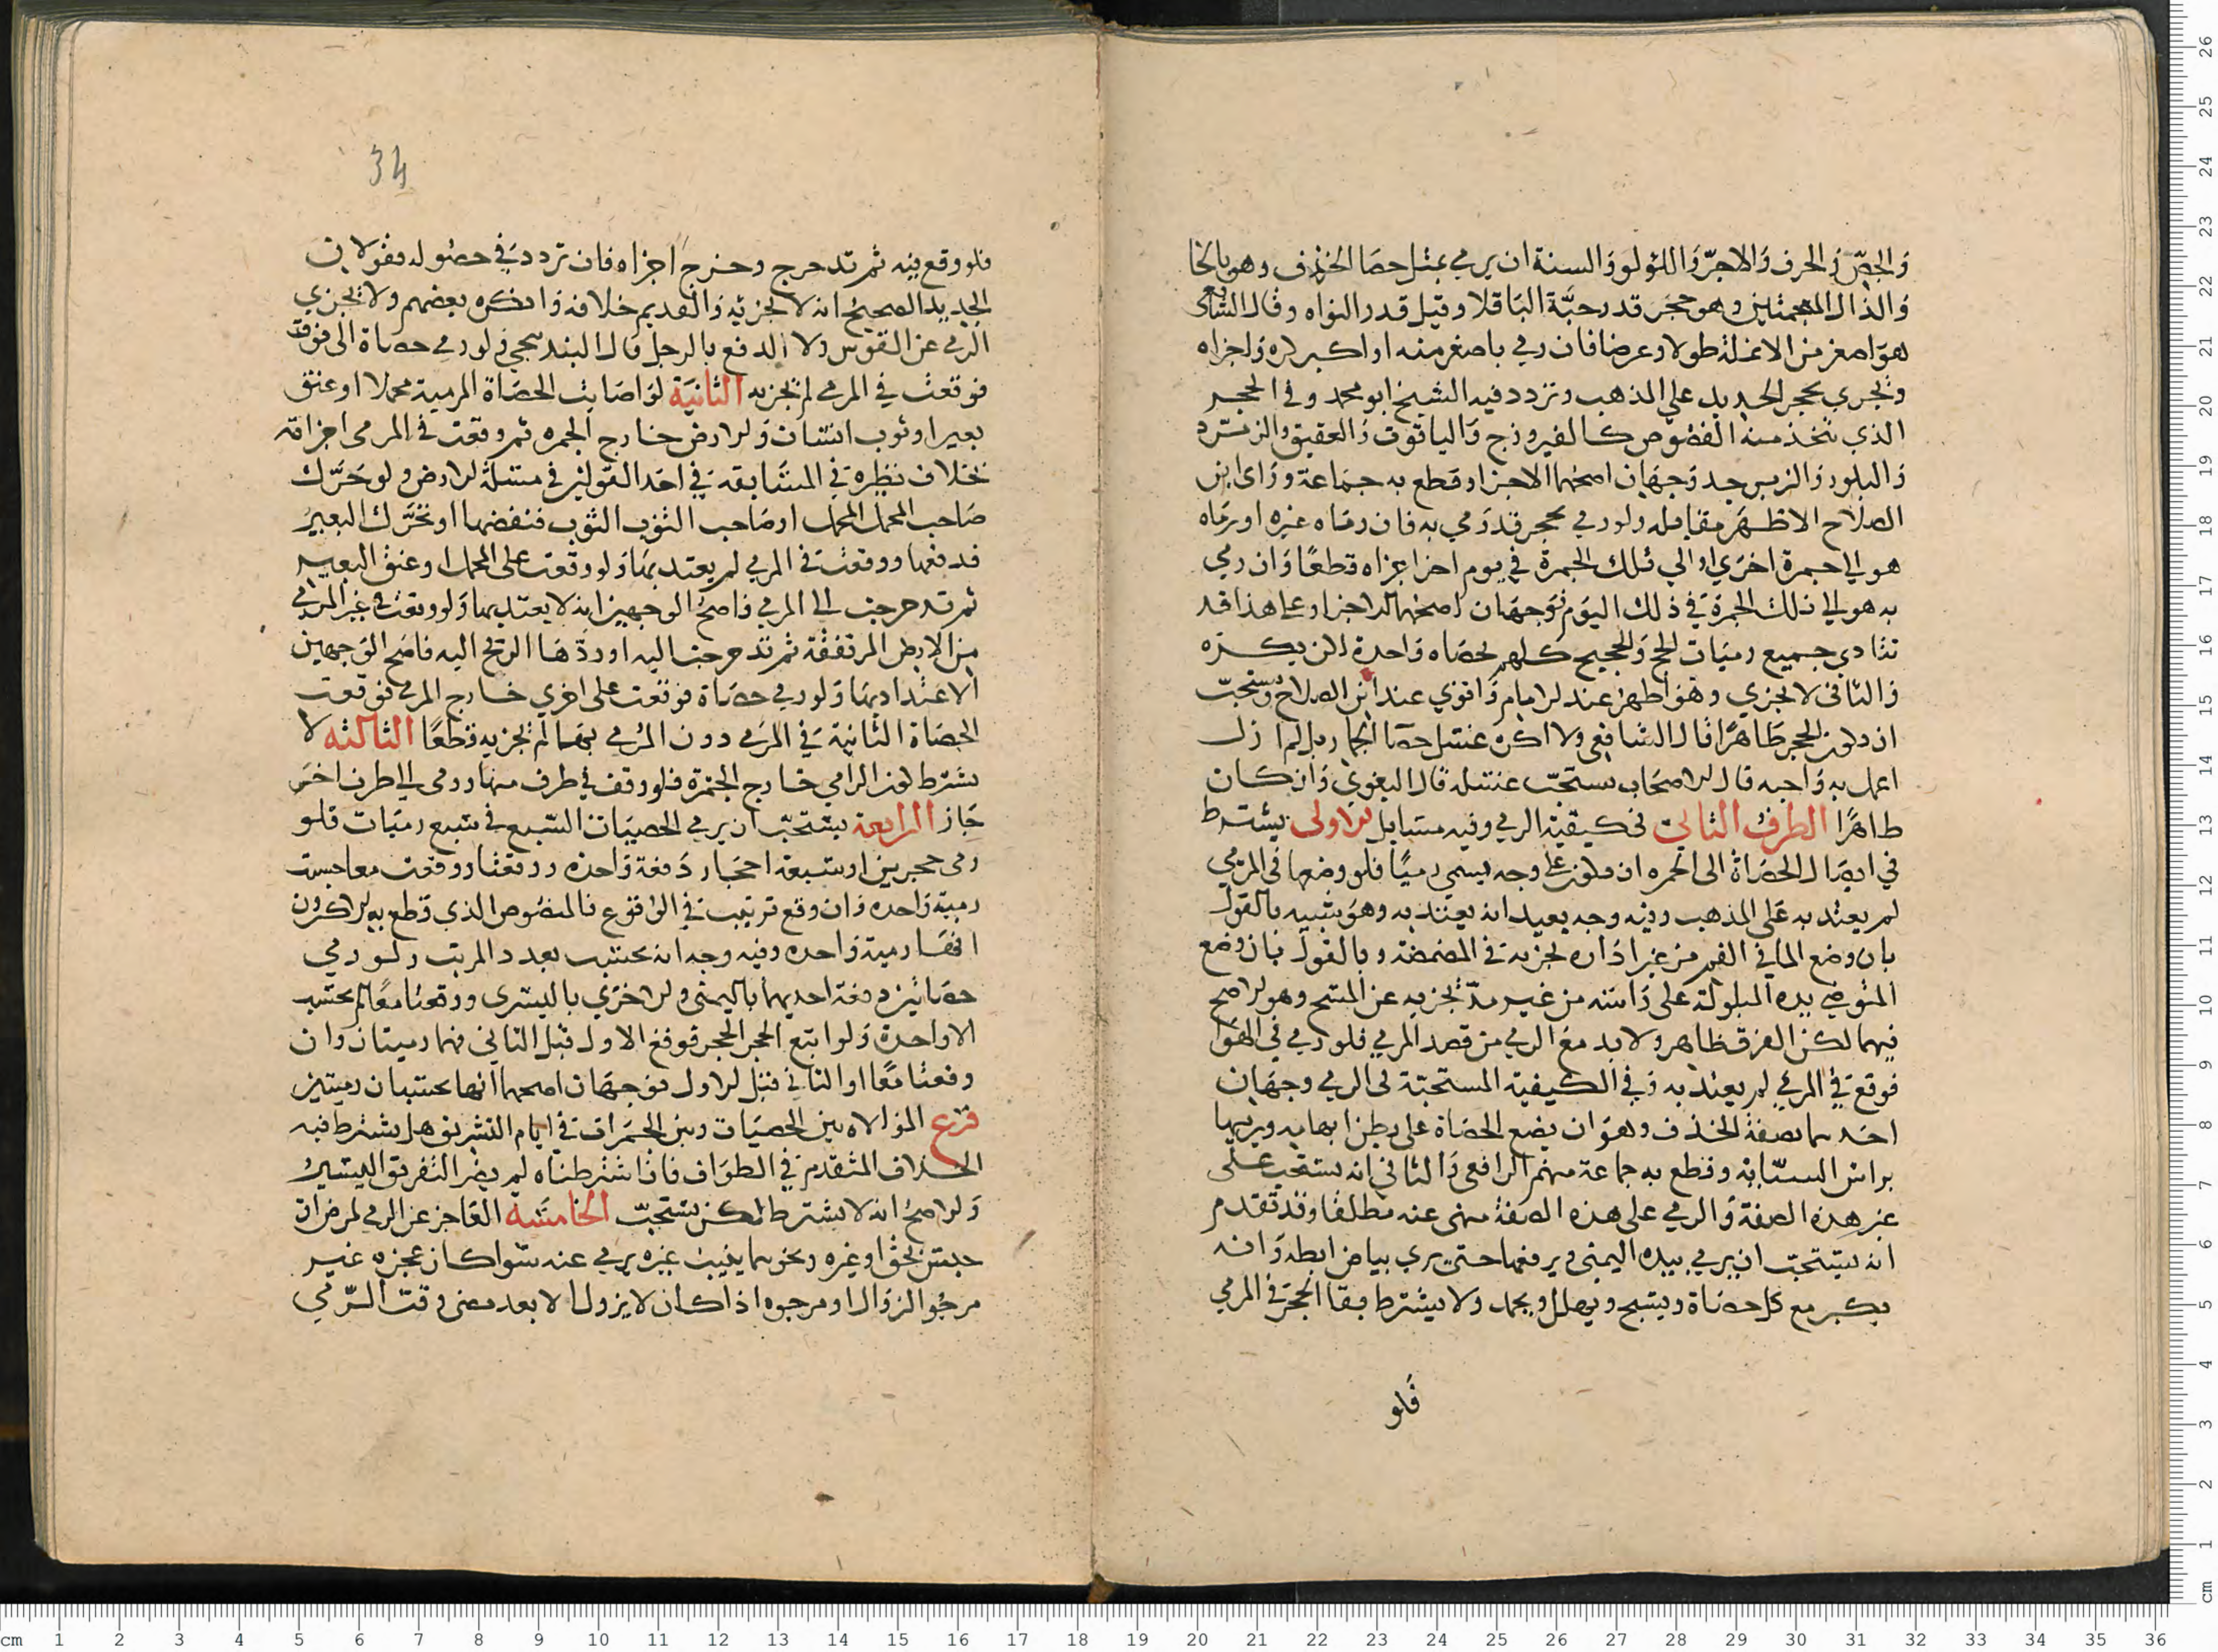 والجصّ والخزف والاجرّ واللولو والسنة ان يرمي بمثل حصا الخذف وهو بالخا
والذال المعجمتين وهو حجر قدر حبّة الباقلا وقيل قدر النواه وقال الشافعي
هو اصغر من الانملة طولا وعرضا فان رمي باصغر منه او اكبر كره واجزاه
ويجري بحجر الحديد على المذهب وتردد فيه الشيخ ابو محمد وفي الحجر
الذي تتخذ منه الفصوص كالفيروزج والياقوت والعقيق والزمرد
والبلور والزبرجد وجهان اصحهما الاجزا وقطع به جماعة وراى ابن
الصلاح الاظهر مقابله ولو رمي بحجر قد رمي به فان رماه غيره او رماه
هو الى جمرة اخرى او الى تلك الجمرة في يوم اخر اجزاه قطعًا وان رمي
به هو الى تلك الجمرة في ذلك اليوم فوجهان اصحهما الاجزا وعلى هذا قد
تتادي جميع رميات الحج والحجيج كلهم بحصاه واحدة لكن يكره
والثاني لا يجزي وهو اظهر عند الامام واقوي عند ابن الصلاح ويستحبّ
ان يكون الحجر طاهرًا قال الشافعي ولا اكره غسل حصا الجمار بل لم ازل
اعمل به واحبه قال الاصحاب يستحبّ غسله قال البغوي وان كان
طاهرًا الطرف الثاني في كيفية الرمي وفيه مسايل الاولى يشترط
في ايصال الحصاة الى الجمره ان يكون على وجه يسمي رميًا فلو وضعها في المرمي
لم يعتد به على المذهب وفيه وجه بعيد انه يعتد به وهو شبيه بالقول
بان وضع الما في الفم من غير اداره يجزيه في المضمضة وبالقول بان وضع
المتوضي يده المبلولة على راسه من غير مدّ يجزيه عن المسح وهو الاصح
فيهما لكن الفرق ظاهر ولا بد مع الرمي من قصد المرمي فلو رمي في الهوا
فوقع في المرمي لم يعتد به وفي الكيفية المستحبّة في الرمي وجهان
احدهما بصفة الخذف وهو ان يضع الحصاة على بطن ابهامه ويرميها
براس السبّابه وقطع به جماعة منهم الرافعي والثاني انه يستحب على
غير هذه الصفة والرمي على هذه الصفة منهى عنه مطلقا وقد تقدم
انه يستحبّ ان يرمي بيده اليمنى ويرفعها حتى يري بياض ابطه وانه
يكبر مع كل حصاة ويسبح ويهلل ويحمد ولا يشترط بقا الحجر في المرمي
فلو
34
فلو وقع فيه ثم تدحرج وخرج اجزاه فان تردد في حصوله فقولان
الجديد الصحيح انه لا يجزيه والقديم خلافه وانكره بعضهم ولا يجزي
الرمي عن القوس ولا الدفع بالرجل قال البندنيجي ولو رمي حصاة الى فوق
فوقعت في المرمي لم تجزيه الثانية لو اصابت الحصاة المرمية محملا او عنق
بعير او ثوب انسان والارض خارج الجمره ثم وقعت في المرمى اجزاته
بخلاف نظيره في المسابقة في احد القولين في مسئلة الارض ولو حرّك
صاحب المحمل المحمل او صاحب الثوب الثوب فنفضها او تحرّك البعير
فدفعها ووقعت في المرمي لم يعتد بها ولو وقعت على المحمل او عنق البعير
ثم تدحرجت الى المرمي فاصح الوجهين انه لا يعتد بها ولو وقعت في غير المرمي
من الارض المرتفعة ثم تدحرجت اليه او ردّها الريح اليه فاصح الوجهين
الاعتداد بها ولو رمي حصاة فوقعت على اخري خارج المرمى فوقعت
الحصاة الثانية في المرمي دون المرمي بها لم تجزيه قطعًا الثالثه لا
يشترط كون الرامي خارج الجمرة فلو وقف في طرف منها ورمى الى طرف اخر
جاز الرابعة يستحبّ ان يرمي الحصيات السبع في سبع رميات فلو
رمى حجرين او سبعة احجار دفعة واحده ووقعتا او وقعت معا حسبت
رمية واحده وان وقع ترتيب في الوقوع فالمنصوص الذي قطع به الاكثرون
انها رمية واحده وفيه وجه انه يحتسب بعدد المرتب ولو رمي
حصاتين دفعة احديهما باليمنى والاخرى باليسرى ووقعتا معًا لم يحتسب
الا واحدة ولو اتبع الحجر الحجر فوقع الاول قبل الثاني فهما رميتان وان
وقعتا معًا او الثاني قبل الاول فوجهان اصحهما انهما يحتسبان رميتين
فرع الموالاه بين الحصيات وبين الجمرات في ايام التشريق هل يشترط فيه
الخلاف المتقدم في الطواف فاذا اشترطناه لم يضر التفريق اليسير
والاصح انه لا يشترط لكن يستحبّ الخامسة العاجز عن الرمي لمرض او
حبس بحق او غيره ونحوهما ينيب غيره يرمي عنه سوا كان عجزه غير
مرجو الزوال او مرجوه اذا كان لا يزول الا بعد مضى وقت الرّمي